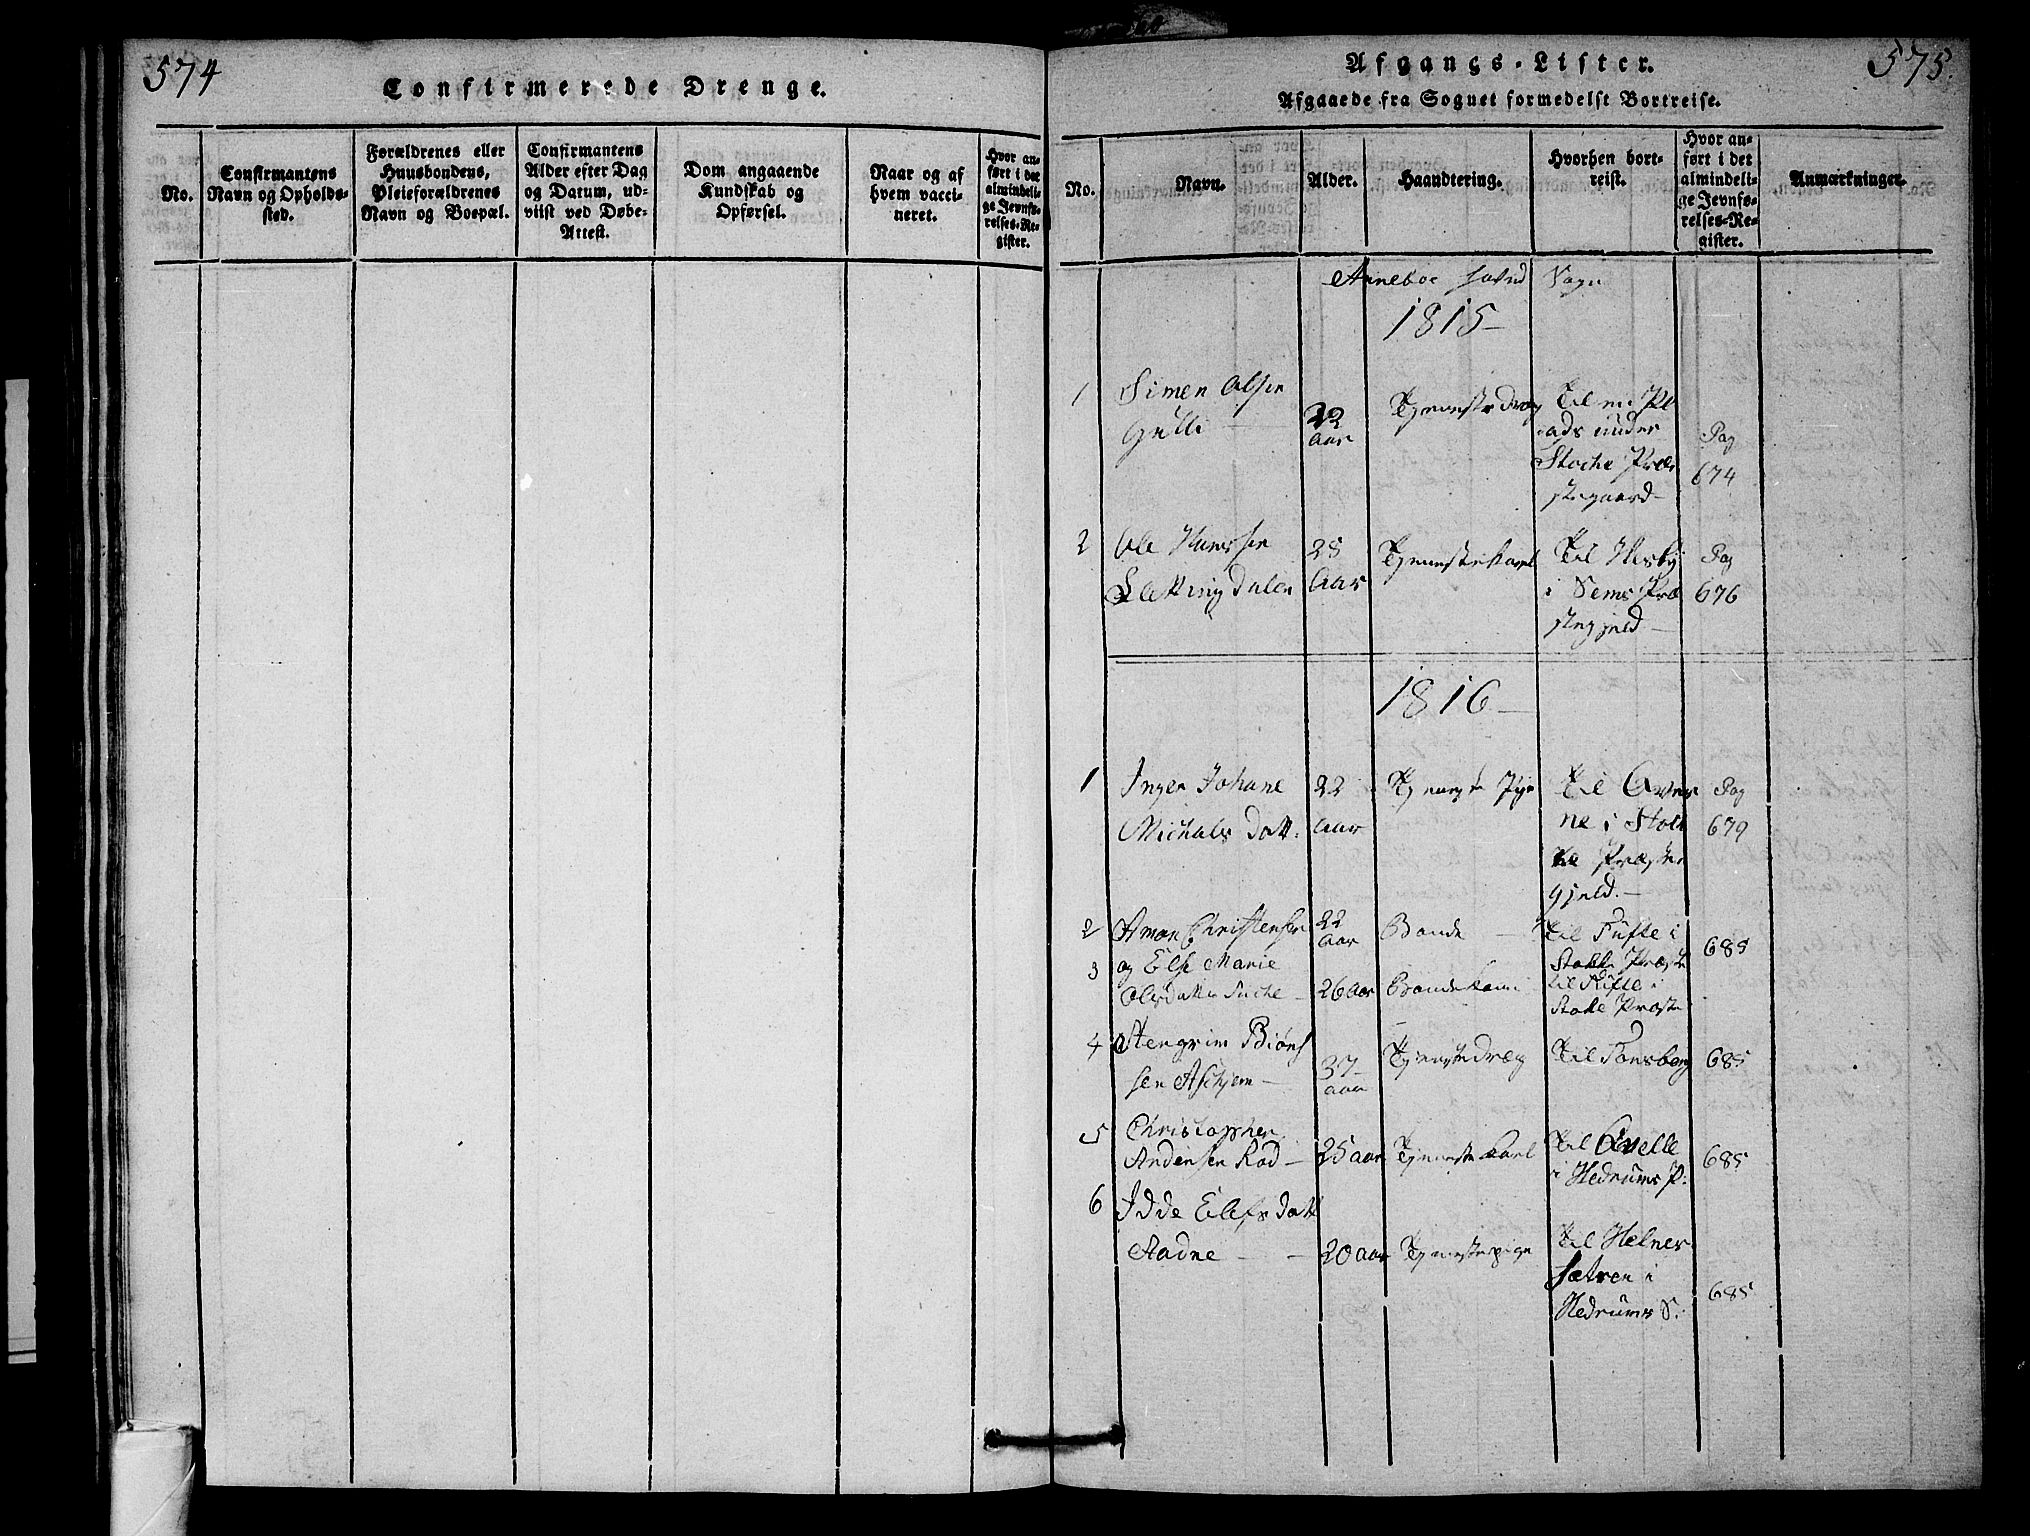 574
Confirmerede Drenge.
No.
Confirmantens Navn og Opholds-sted.
Forældrenes eller Huusbondens, Pleieforældrenes Navn og Boepæl.
Confirmantens Alder efter Dag og Datum, ud-viist ved Døbe-Attest.
Dom angaaende Kundskab og Opførsel.
Naar og af hvem vacci-neret.
Hvor an-ført i det almindeli-ge Jevnfø-relses-Re-gister.
575.
Afgangs-Lister.
Afgaaede fra Sognet formedelst Bortreise.
No.
Navn.
Alder.
Haandtering.
Hvorhen bort-reist.
Hvor an-ført i det almindeli-ge Jevnfø-relses-Re-gister.
Anmærkninger.
Arneboe Hoved Sogn
1815
1 Simen Olsen
Gulli
22
Aar
Tjenestedreng
Til en Pl
ads under
Stocke Præ
stegaard
Pag
674
2 Ole Hansen
Slettingdalen
25
Aar
Tjenestekarl
Til Hesby
i Sems Præ
stegjeld
Pag
676
1816
1 Inger Johane
Michels Datt.
22
Aar
Tjeneste Pige
Til
ne i Stok
ke Præste
gjeld.
Pag
679
2 Amon Christensen
22
Aar
Bonde
til Tufte i
Stokke Præste
685
3 og Else Marie
Olsdatter
26 aar
Bondekone
til Tufte i
Stokke Præste
4 Stengrim Biørn
sen Aschjem
37
aar
Tjenestedreng
Til Tonsberg
685
5 Christopher
Andersen Rød
25 aar
Tjenestekarl
Til Qvelle
i Hedrums P:
685
6 Idde Elefsdatt
Aadne
20 aar
Tjenestepige
Til Helner
sætren i
Hedrums S.
685